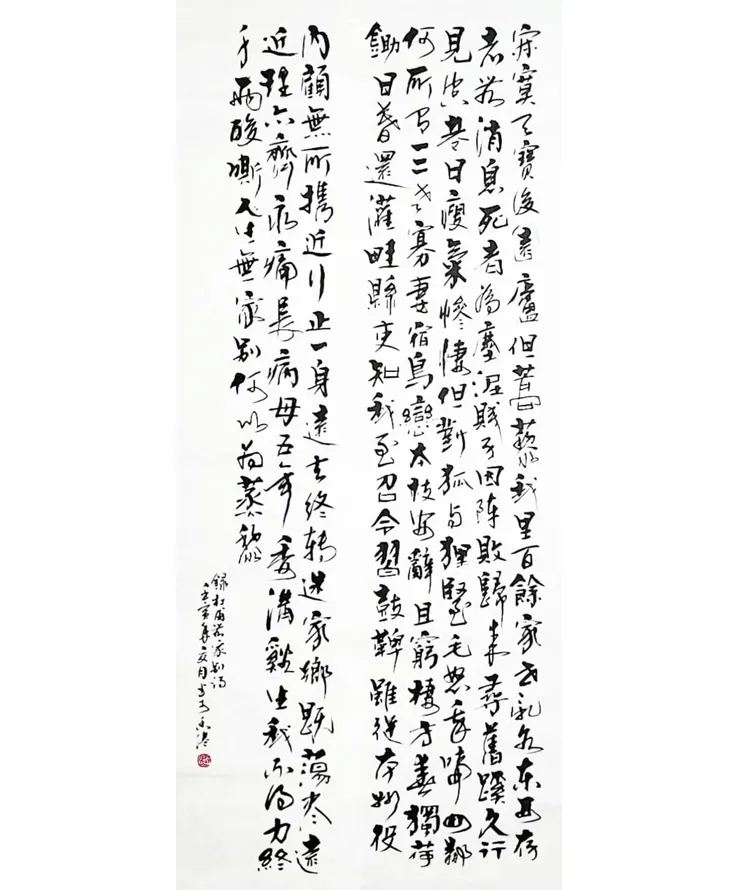 寂寞天寶後園廬但蒿藜我里百餘家世亂各東西存
者無消息死者為塵泥賤子因陣敗歸來尋舊蹊久行
見空巷日瘦氣慘悽但對狐與狸豎毛怒我啼四鄰
何所有一二老寡妻宿鳥戀本枝安辭且窮棲方春獨荷
鋤日暮還灌畦縣吏知我至召令習鼓鞞雖從本州役
內顧無所攜近行止一身遠去終轉迷家鄉既蕩盡遠
近理亦齊永痛長病母五年委溝谿生我不得力終
身兩酸嘶人生無家別何以為蒸黎
錄杜甫無家別詩
壬寅年月書於香港